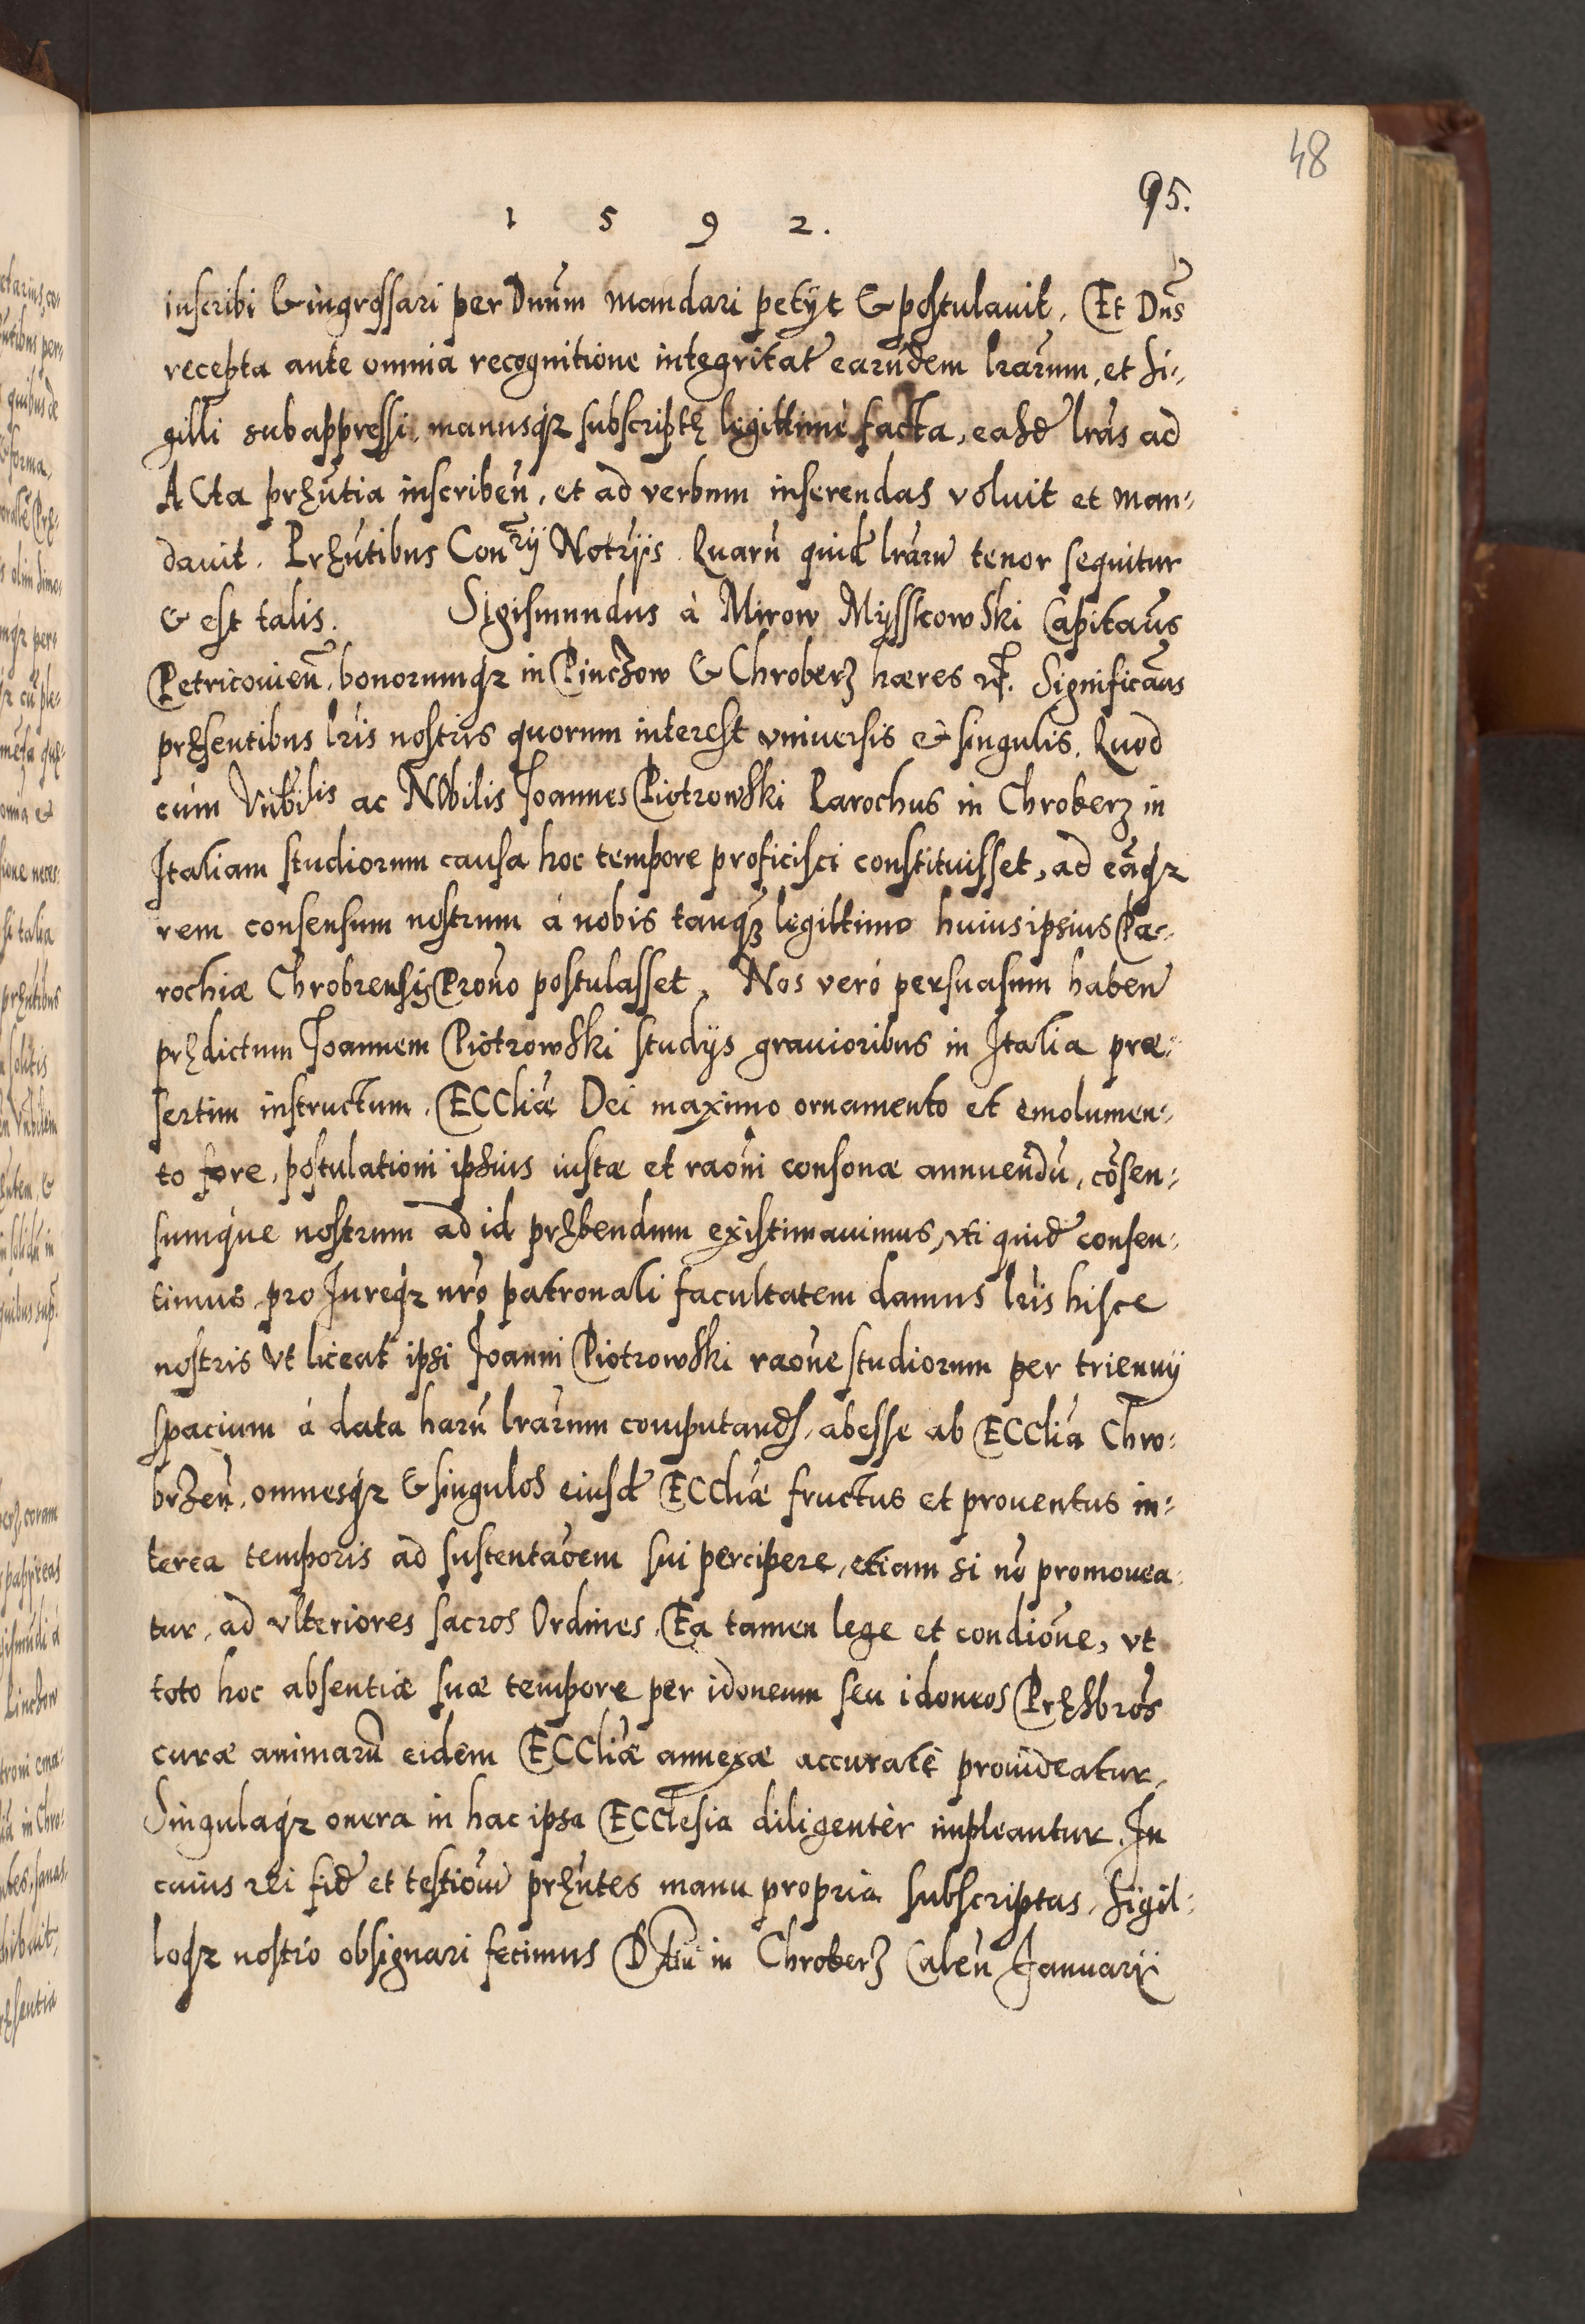 48
95.
1 5 9 2.
inscribi & ingrossari per Dnum mandari petijt & postulauit. Et Dns
recepta ante omnia recognitione integritat earundem lrarum, et si-
gilli subappressi, manusq3 subscriptę legittimè facta, easd lras ad
ACta pręntia inscriben, et ad verbum inserendas voluit et man-
dauit. Pręntibus Conrij Notrijs. Quaru quid lraru tenor sequitur
& est talis. Sigismundus à Mirow Mysskowski Capitaus
Petricouien, bonorumq3 in Pinczow & Chroberz hæres Significaus
pręsentibus lris nostris quorum interest vniuersis & singulis. Quod
cum Vnbilis ac Nobilis Joannes Piotrowski Parochus in Chroberz in
Italiam studiorum causa hoc tempore proficisci constituisset, ad eaq3
rem consensum nostrum à nobis tanq3 legittimo huius ipsius Pa-
rochiæ Chrobrensis Prono postulasset. Nos verò persuasum haben
prędictum Joannem Piotrowski studijs grauioribus in Italia præ-
sertim instructum. ECCliæ Dei maximo ornamento et emolumen-
to fore, postulationi ipsius iustæ et raoni consonæ annuendu, cosen-
sumque nostrum ad id prębendum existimauimus, vti quid consen-
timus, pro Jureq3 nro patronali facultatem damus lris hisce
nostris vt liceat ipsi Joanni Piotrowski raone studiorum per triennij
spacium à data haru lrarum computand, abesse ab ECClia Chro-
brzen, omnesq3 & singulos eiusd ECCliæ fructus et prouentus in-
terea temporis ad sustentaoem sui percipere, etiam si no promouea-
tur, ad vlteriores sacros Ordines. Ea tamen lege et condione, vt
toto hoc absentiæ suæ tempore per idoneum seu idoneos Pręsbros
curæ animaru eidem ECCliæ annexæ accuratè prouideatur,
Singulaq3 onera in hac ipsa ECClesia diligentèr impleantur. In
cuius rei fid et testioni pręntes manu propria subscriptas, sigil-
loq3 nostro obsignari fecimus Dtu in Chroberz Calen Januarij